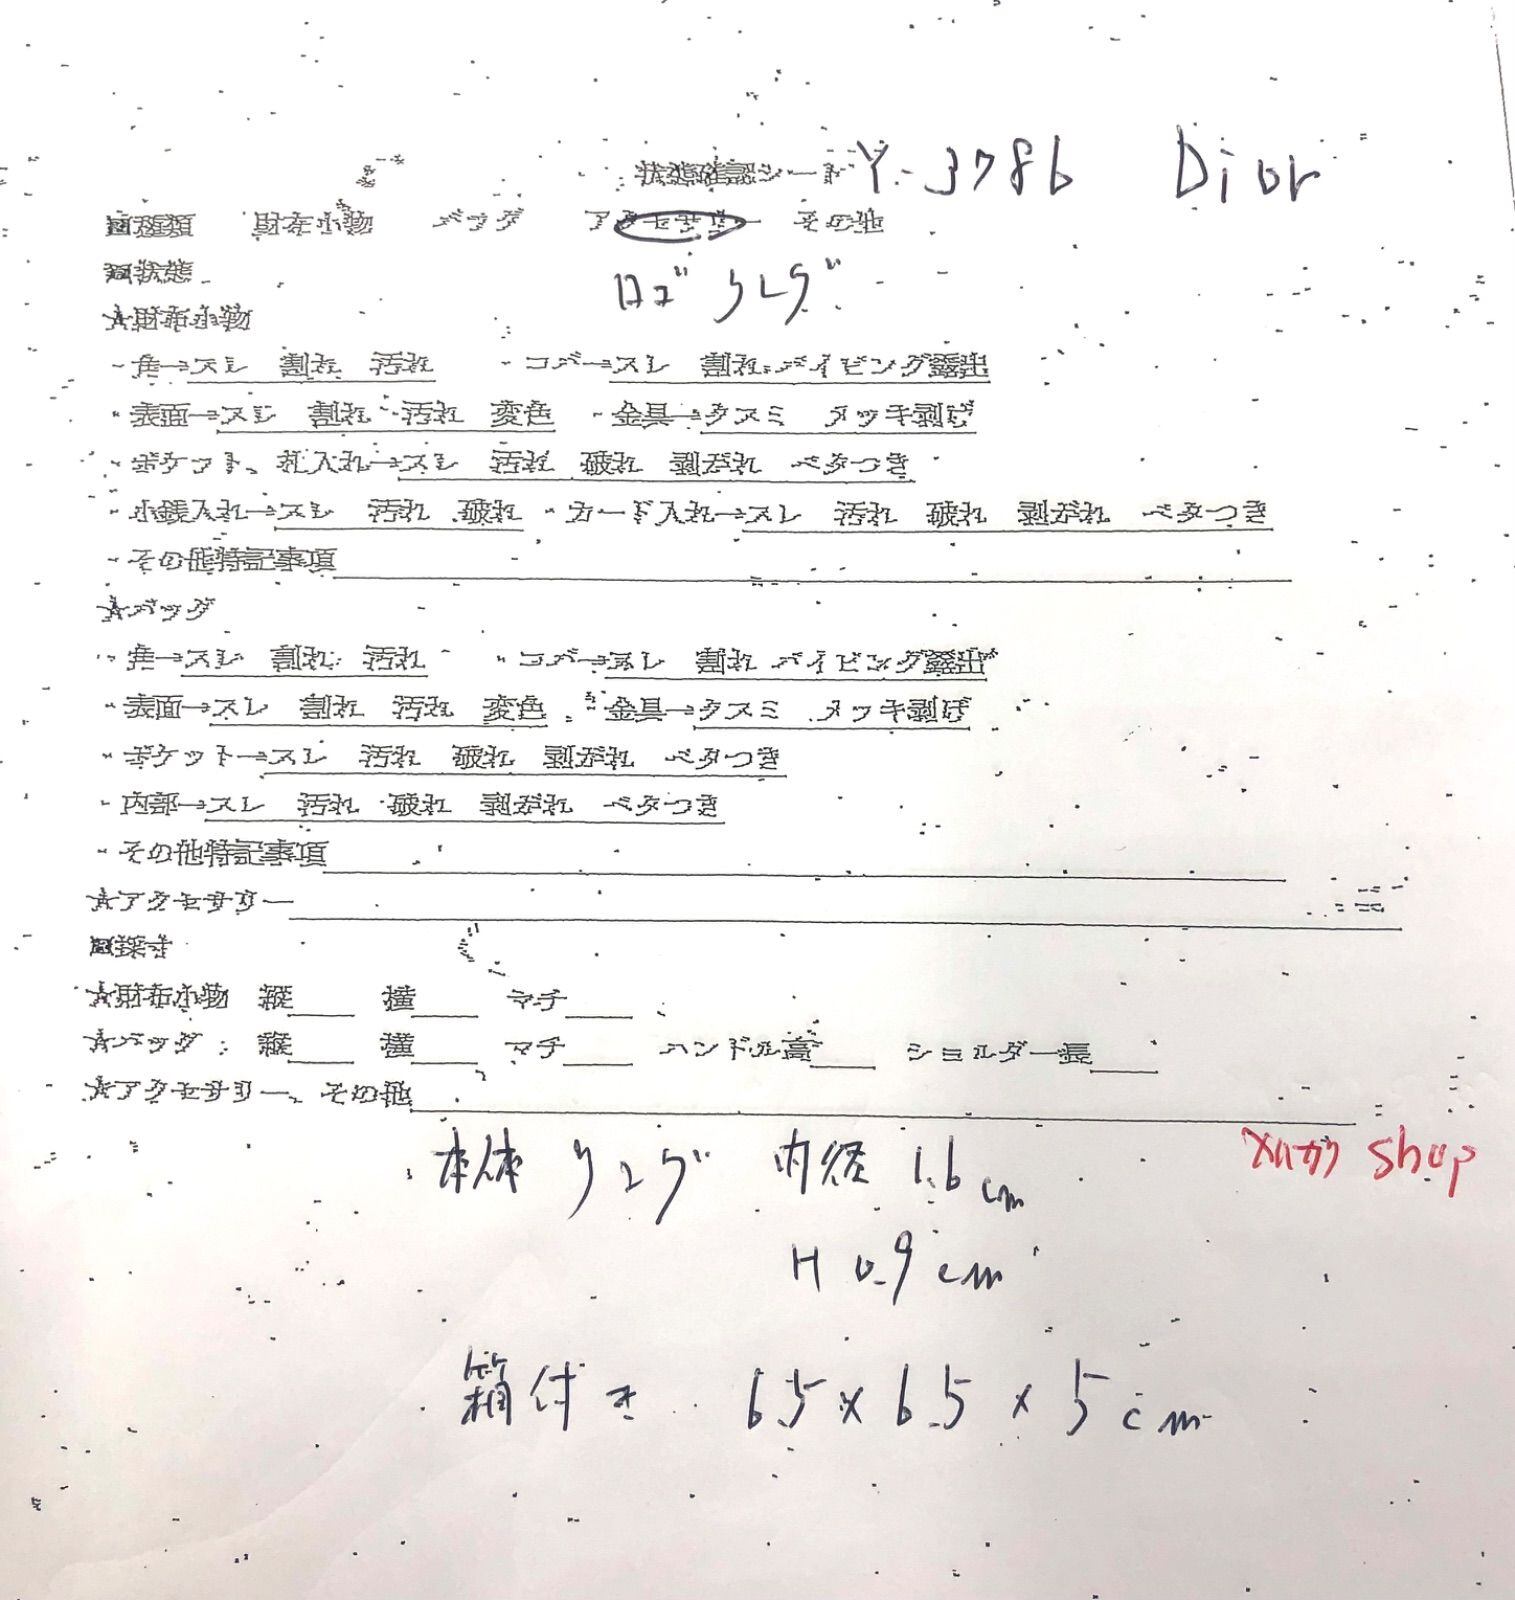 状態確認シート Y-3786 Dior
■種類 財布小物 バッグ アクセサリー その他
■状態 ロゴ リング
★財布小物
・角→スレ 割れ 汚れ ・コバ→スレ 割れ パイピング露出
・表面→スレ 割れ 汚れ 変色 ・金具→クスミ メッキ剥げ
・ポケット、札入れ→スレ 汚れ 破れ 剥がれ ベタつき
・小銭入れ→スレ 汚れ 破れ ・カード入れ→スレ 汚れ 破れ 剥がれ ベタつき
・その他特記事項
★バッグ
・角→スレ 割れ 汚れ ・コバ→スレ 割れ パイピング露出
・表面→スレ 割れ 汚れ 変色 ・金具→クスミ メッキ剥げ
・ポケット→スレ 汚れ 破れ 剥がれ ベタつき
・内部→スレ 汚れ 破れ 剥がれ ベタつき
・その他特記事項
★アクセサリー
■採寸
★財布小物 縦 横 マチ
★バッグ 縦 横 マチ ハンドル高 ショルダー長
★アクセサリー、その他
本体 リング 内径 1.6cm
メルカリ shop
H 0.9cm
箱付き 6.5×6.5×5cm